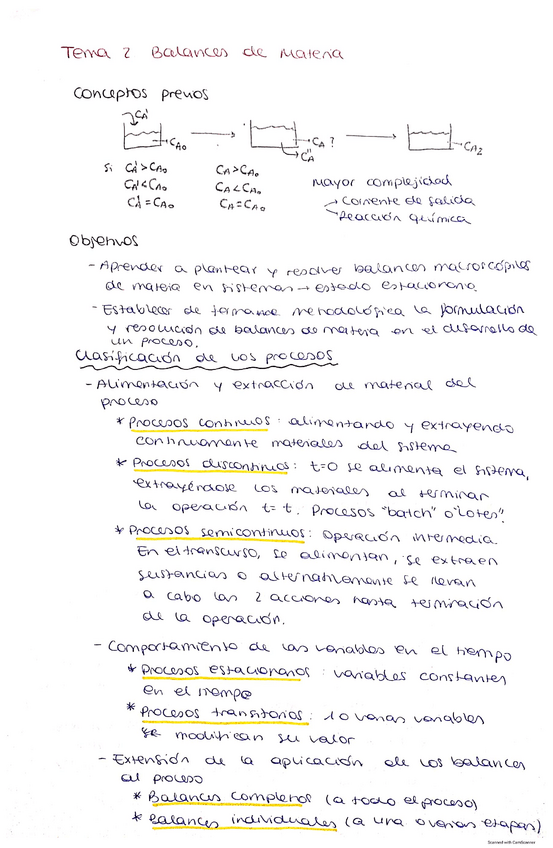 Tema 2 Balances de Materia
Conceptos previos
CA'
CA0
CA ?
CA''
CA2
Si CA'>CA0 CA>CA0
CA'<CA0 CA<CA0
CA'=CA0 CA=CA0
Mayor complejidad
→ Corriente de salida
→ Reacción química
Objetivos
- Aprender a plantear y resolver balances macroscópicos
de materia en sistemas → estado estacionario.
- Establecer de forma metodológica la formulación
y resolución de balances de materia en el desarrollo de
un proceso.
Clasificación de los procesos
- Alimentación y extracción de material del
proceso
* Procesos continuos: alimentando y extrayendo
continuamente materiales del sistema
* Procesos discontinuos: t=0 se alimenta el sistema,
extrayéndose los materiales al terminar
la operación t= t. Procesos "batch" o "lotes".
* Procesos semicontinuos: Operación intermedia.
En el transcurso, se alimentan, se extraen
sustancias o alternativamente se llevan
a cabo las 2 acciones hasta terminación
de la operación.
- Comportamiento de las variables en el tiempo
* Procesos estacionarios: variables constantes
en el tiempo
* Procesos transitorios: 1 o varias variables
se modifican su valor
- Extensión de la aplicación de los balances
al proceso
* Balances completos (a todo el proceso)
* Balances individuales (a una o varias etapas)
Scanned with CamScanner